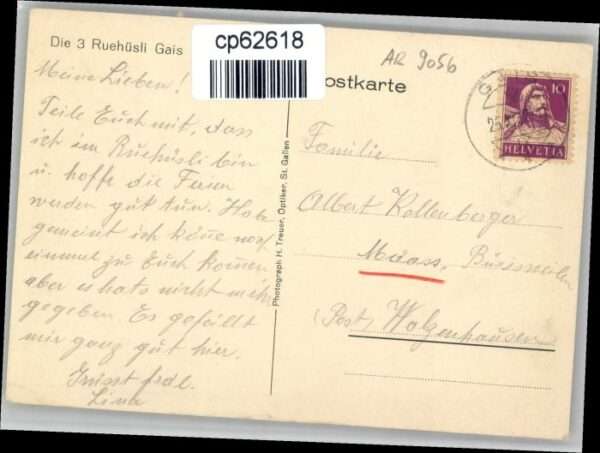 Die 3 Ruehüsli Gais
cp62618
AR 9056
Postkarte
Meine Lieben!
Teile Euch mit, dass
ich im Ruehüsli bin
u. hoffe die Ferien
werden gut tun. Habe
gemeint ich köne noch
einmal zu Euch komen
aber es hats nicht mehr
gegeben. Es gefällt
mir ganz gut hier.
Grüsst frdl.
Lina
Photograph H. Treuer, Optiker, St. Gallen
10
HELVETIA
Familie
Albert Kellenberger
Maass,
(Post) Walzenhausen